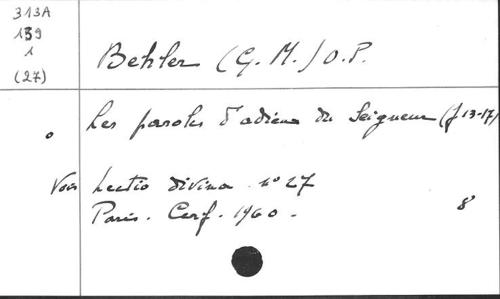 313A
139
1
(27)
Behler (G. M.) O.P.
o Les paroles d'adieux du Seigneur (J 13-17)
Voir Lectio divina. n° 27
Paris. Cerf. 1960. 8°